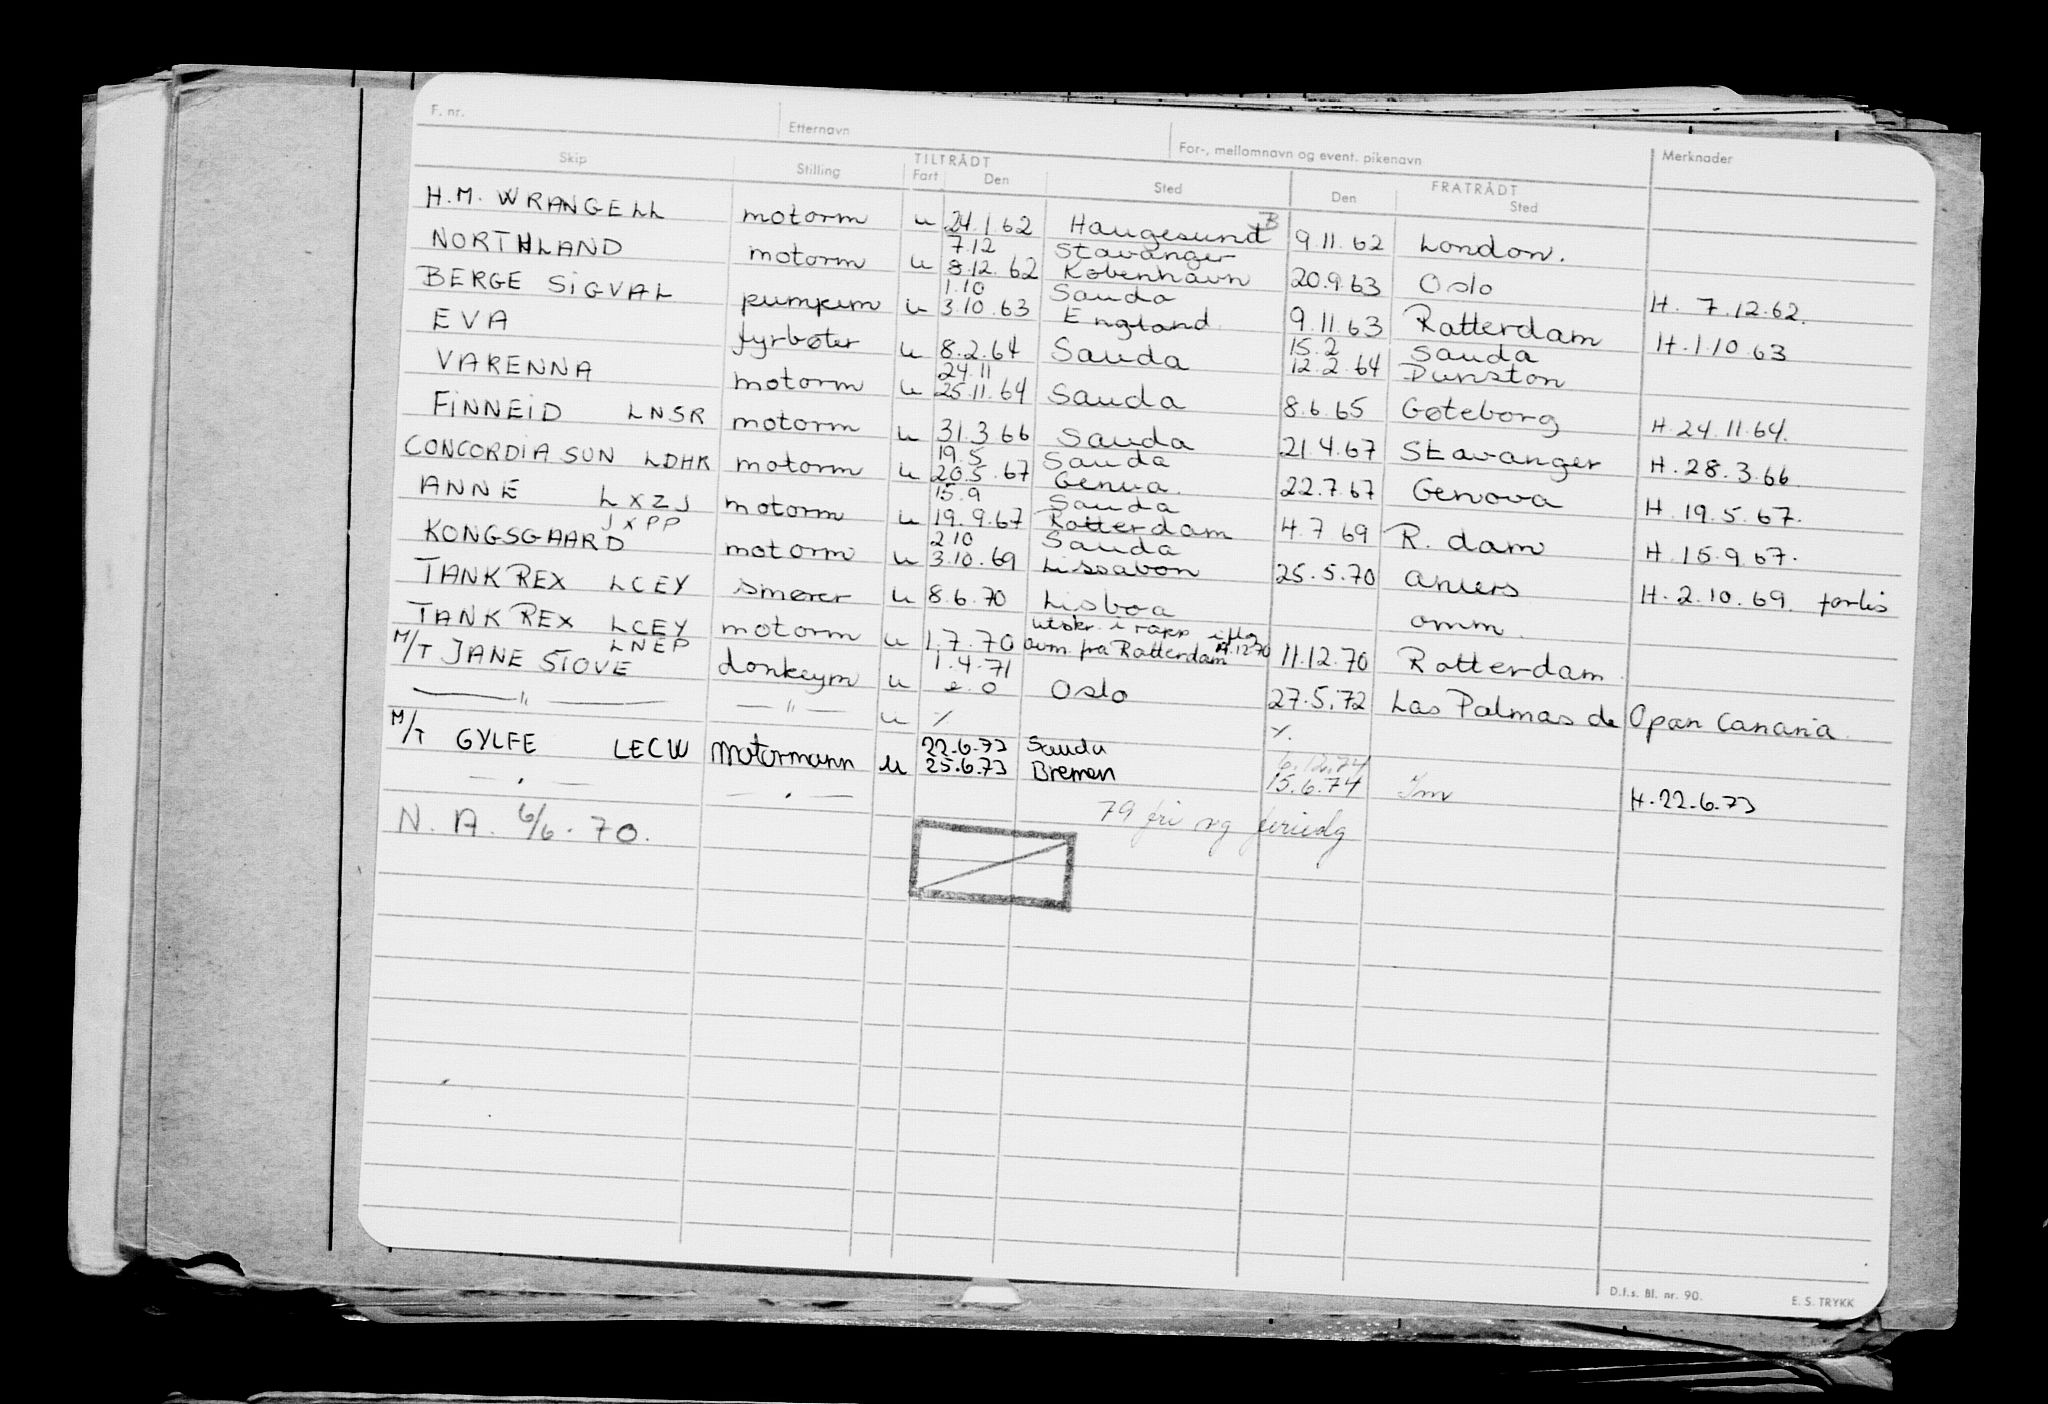 F. nr. Etternavn For-, mellomnavn og event. pikenavn Merknader
Skip Stilling TILTRÅDT FRATRÅDT
Fart Den Sted Den Sted
H.M. WRANGELL motorm u 24.1.62 Haugesund B 9.11.62 London.
7.12 Stavanger
NORTHLAND motorm u 8.12.62 København 20.9.63 Oslo H. 7.12.62.
1.10 Sauda
BERGE SIGVAL pumpem u 3.10.63 England 9.11.63 Rotterdam H.1.10.63
15.2 Sauda
EVA fyrbøter u 8.2.64 Sauda 12.2.64 Dunston
24.11
VARENNA motorm u 25.11.64 Sauda 8.6.65 Gøteborg H.24.11.64.
FINNEID LNSR motorm u 31.3.66 Sauda 21.4.67 Stavanger H.28.3.66.
19.5 Sauda
CONCORDIA SUN LDHK motorm u 20.5.67 Genua. 22.7.67 Genova H.19.5.67.
15.9 Sauda
ANNE LXZJ motorm u 19.9.67 Rotterdam 4.7 69 R. dam H.15.9.67.
JXPP 2.10 Sauda
KONGSGAARD motorm u 3.10.69 Lissabon 25.5.70 H.2.10.69.
TANK REX LCEY smører u 8.6.70 Lisboa omm.
utskr. i rapp
TANK REX LCEY motorm u 1.7.70 avm fra Rotterdam 11.12.70 11.12.70 Rotterdam
LNEP 1.4.71
M/T JANE STOVE donkeym u Oslo 27.5.72 Las Palmas de Gran Canaria
— " — — " — u % %.
22.6.73 Sauda
M/T GYLFE LECW Motormann u 25.6.73 Bremen 6.12.74
15.6.74 H.22.6.73
— . — — . — 79 fri og
N. A. 6/6.70.
D.f.s. Bl. nr. 90. E. S. TRYKK